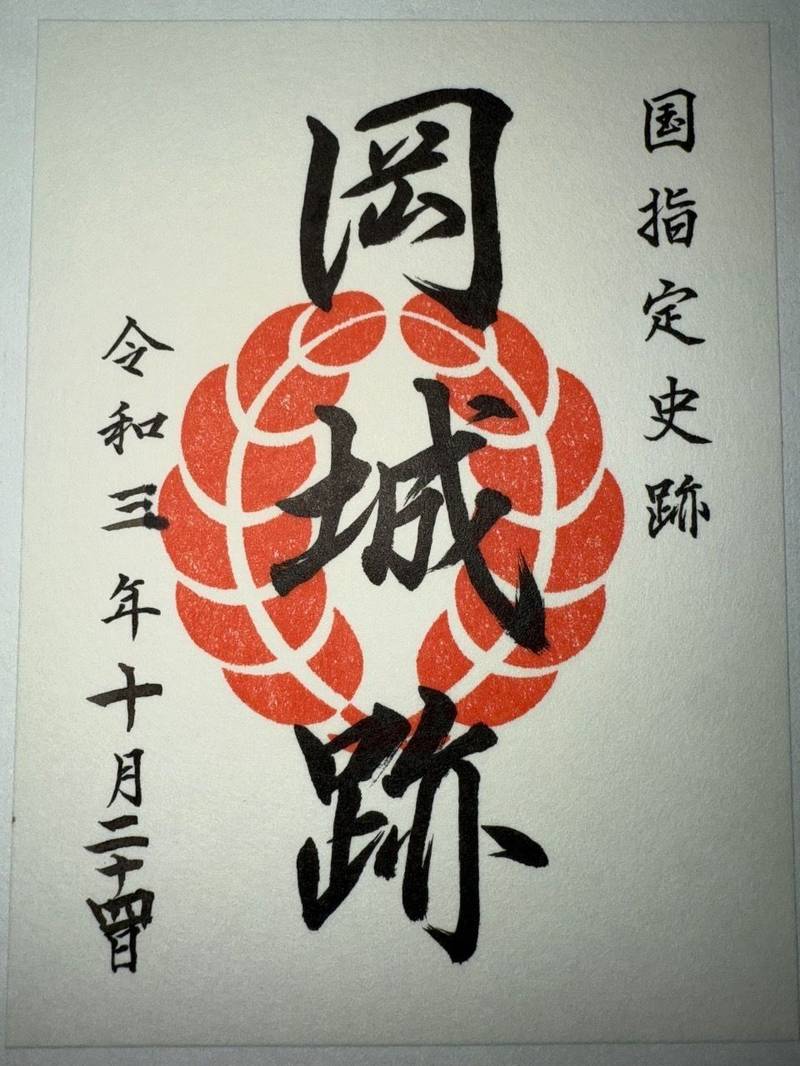 国指定史跡
岡城跡
令和三年十月二十四日